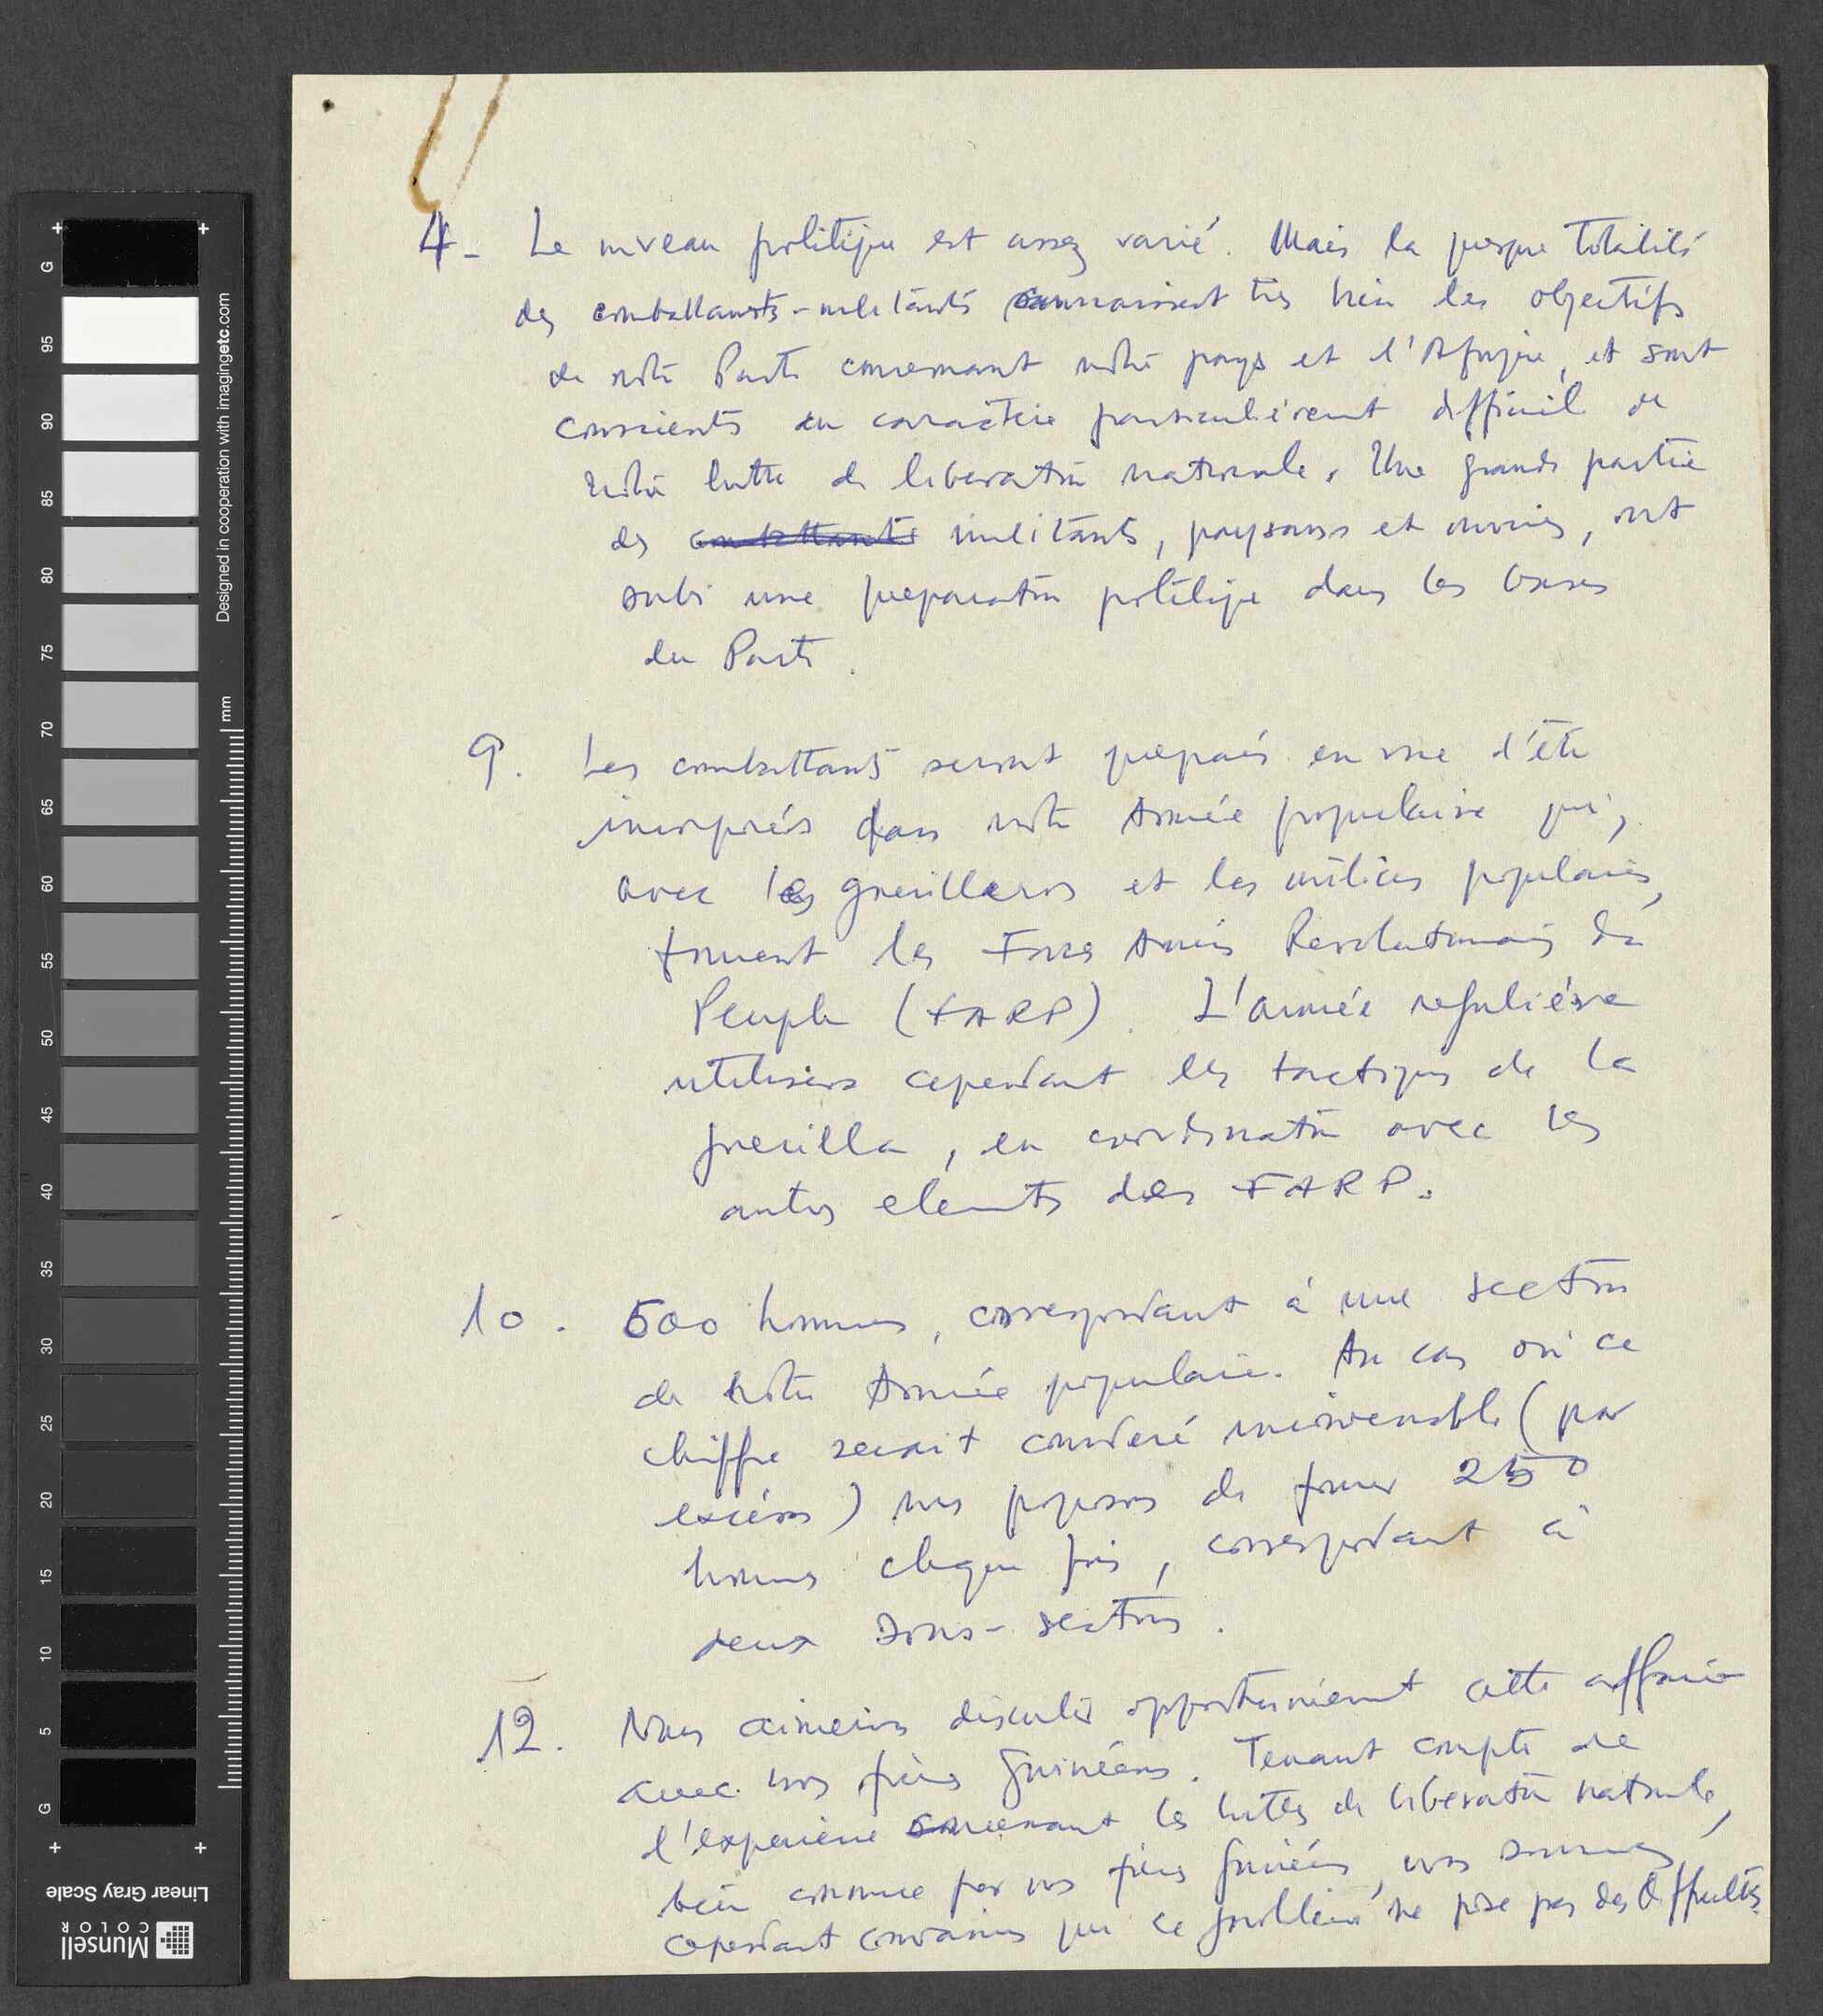 4- Le niveau politique est assez varié. Mais la presque totalité
des combattants-militants connaissent très bien les objectifs
de notre Parti concernant notre pays et l'Afrique, et sont
conscients du caractère particulièrement difficil de
notre lutte de liberation nationale. Une grande partie
des combattants militants, paysans et ouvriers, ont
subi une preparation politique dans les bases
du Parti.
9. Les combattants seront preparés en vue d'être
incorporés dans notre Armée populaire qui,
avec les guerilleros et les milices populaires,
forment les Forces Armées Revolutionnaires du
Peuple (FARP). L'armée regulière
utilisera cependant les tactiques de la
guerilla, en coordination avec les
autres elements des FARP.
10. 500 hommes, correspondant à une section
de notre Armée populaire. Au cas où ce
chiffre serait consideré inconvenable (par
excés) nous proposons de former 250
hommes chaque fois, correspondant à
deux sous-sections.
12. Nous aimerions discuter opportunément cette affaire
avec nos frères guinéens. Tenant compte de
l'experience concernant les luttes de liberation nationale,
bien connue par nos frères guinéens, nous sommes
cependant convaincus que ce problème ne pose pas des difficultés.
Designed in cooperation with imagingetc.com
mm
G
95
90
85
80
75
70
65
60
55
50
45
40
35
30
25
20
15
10
5
G
Linear Gray Scale
Munsell
COLOR